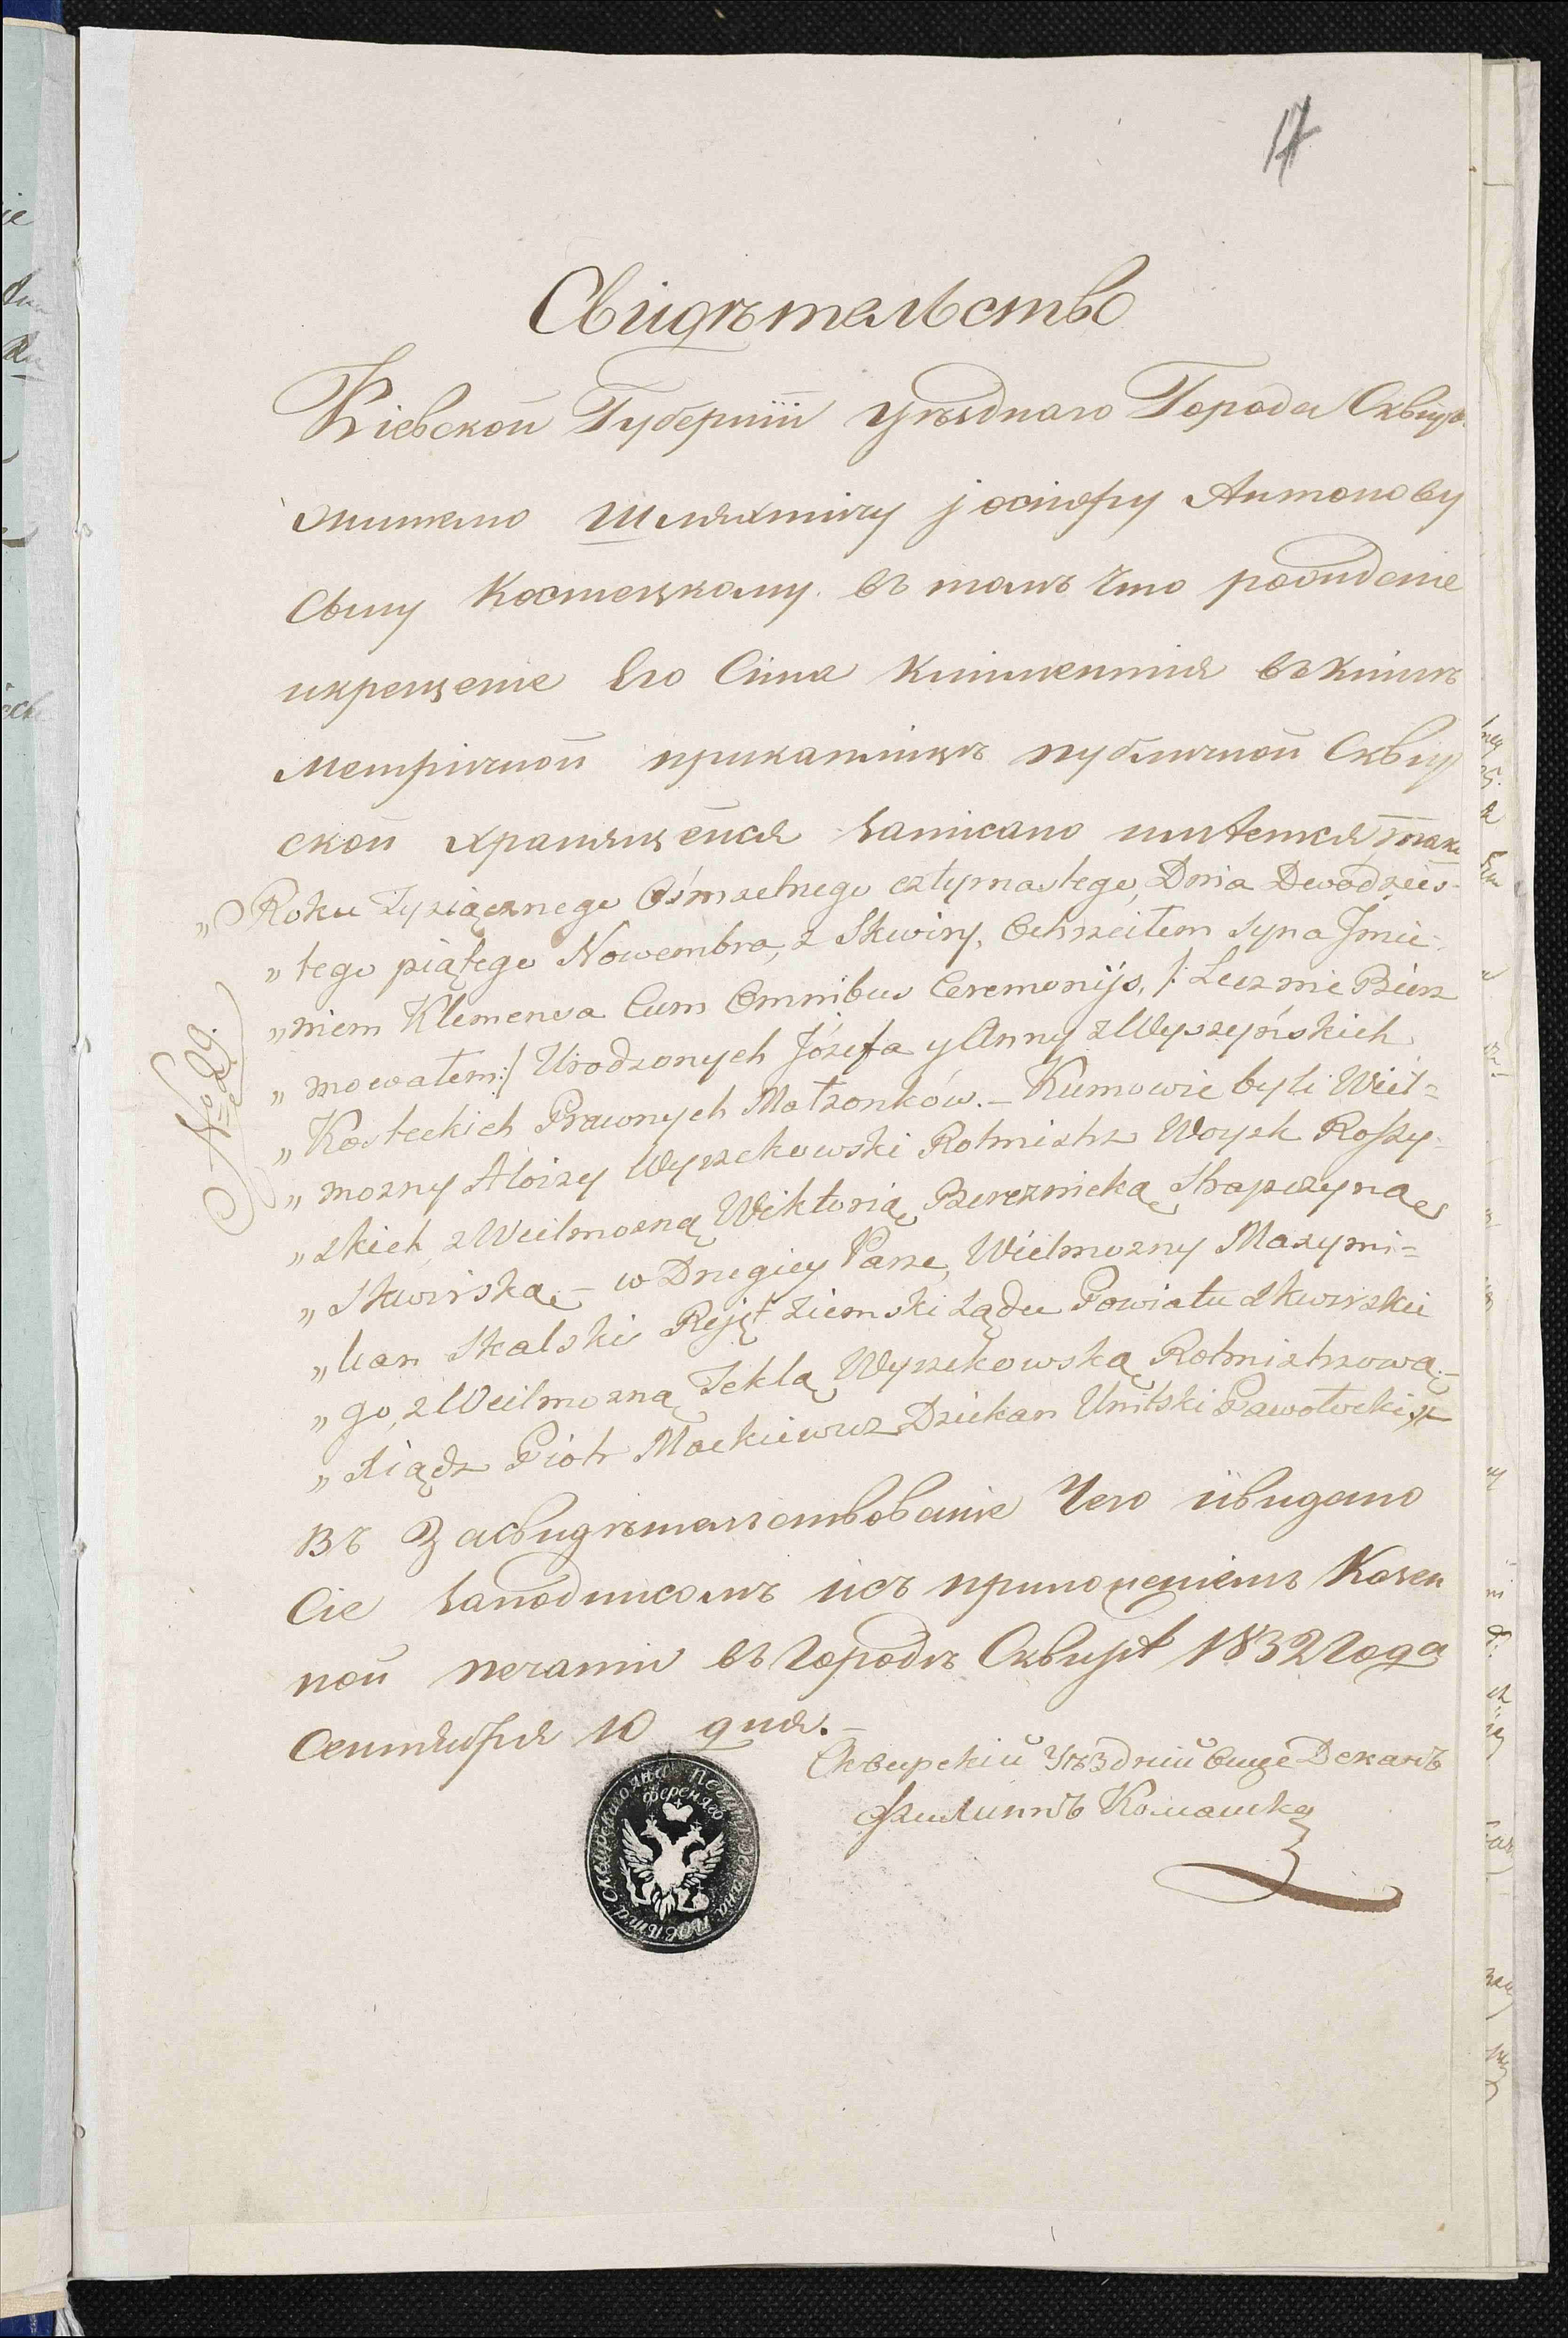 17
Свидѣтельство
Кіевской Губерніи уѣзднаго Города Сквиры
жителю Шляхтичу јосифу Антонову
Сыну Костецкому въ томъ что рождение
икрещение Его Сина Климентия въ книгѣ
Метричной прикаплицѣ публичной Сквир
ской хранящейся записано ничтется тако
„Roku Tysiącznego Ośmsetnego cztyrnastego, Dnia Dwódzies-
„tego piątego Nowembra, z Skwiry, Ochrzciłem Syna Jmie-
„niem Klemensa Cum Omnibus Ceremonijs, /: Lecz nie Bierz
„mowałem:/ Urodzonych Józefa y Anny z Wyszyńskich
„Kosteckich Prawnych Małzonków.– Kumowie byli Wiel=
„mozny Aloizy Wyszekowski Rotmistrz Woysk Rossy-
„skich, z Wielmozną Wiktorią Bereznicką Skarbczyną
„Skwirską – w Drugiey Parze, Wielmozny Maxymi=
„lian Skalski Rejęt Ziemski Sądu Powiatu Skwirskie
„go, z Wielmozną Teklą Wyszekowską Rotmistrzową.–
„Xiądz Piotr Mackiewicz Dziekan Unitski Pawołocki
№ 99.
Въ Засвидѣтельствование Чего ивидано
Сіе заподписомъ исъ приложениемъ Казен
ной печати въ городѣ Сквирѣ 1832 года
Сентября 10 дня.–
Сквирскій Уѣздній Вице Деканъ
Филиппъ Комашко